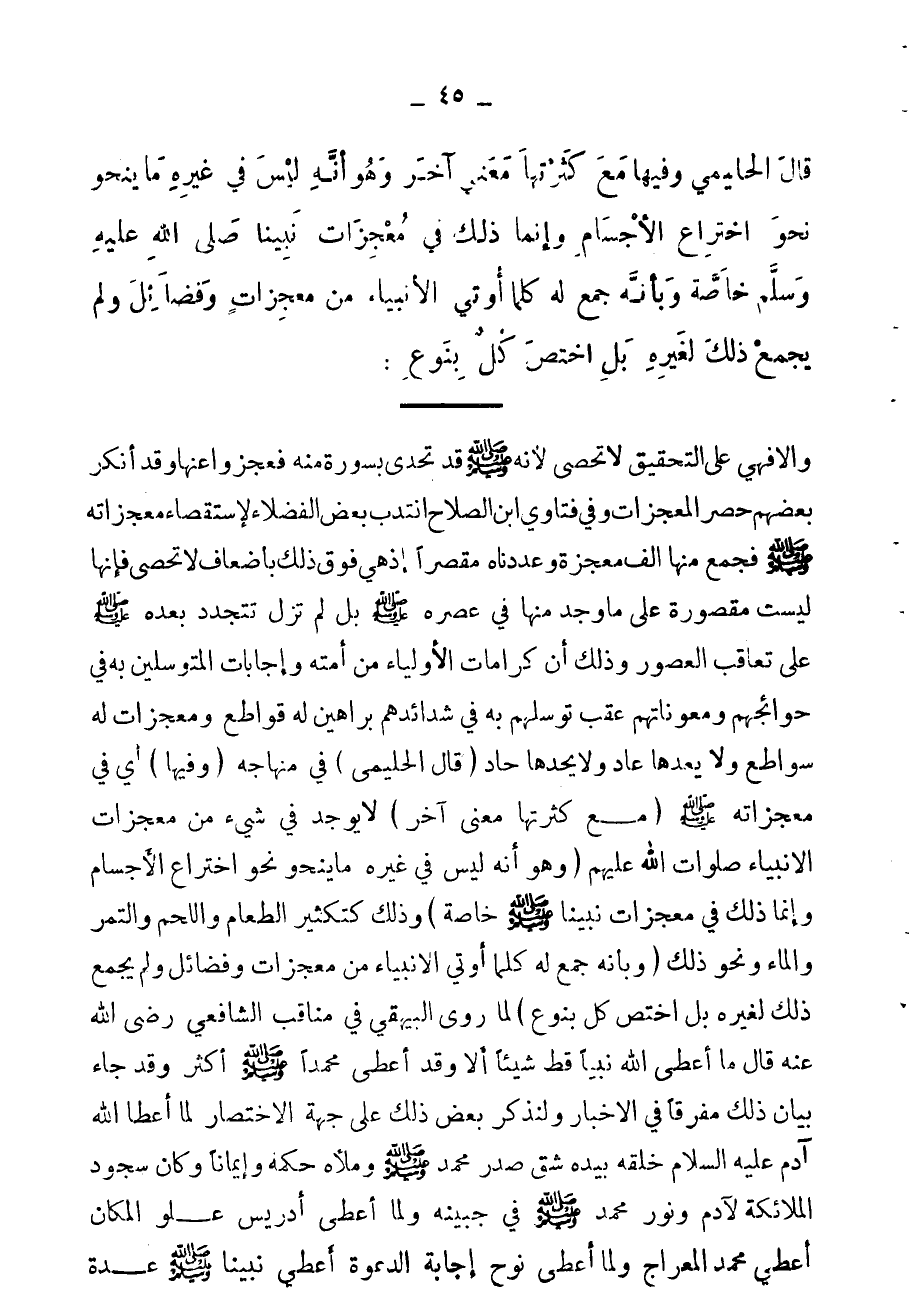 _ ٤٥ _
قالَ الحليمي وفيها مَعَ كَثْرَتِهاَ مَعَنىً آخَر وَهُوَ أنَّهِ لَيْسَ في غيرِهِ مَا ينحو
نحوَ اختراِع الأجْسَامِ وإنما ذلك في مُعْجِزَات نَبِينا صَلى اللهِ عليهِ
وَسلَّم خاصَّة وَبأنهَّ جمع له كلما أُوتي الأنبياء من معجزاتٍ وَفضاَئِلَ ولم
يجمعْ ذلكَ لغَيرِهِ بَلِ اختصَ كُلٌ بِنَوعِ :
والافهي على التحقيق لاتحصى لأنه ﷺ قد تحدى بسورة منه فعجزوا عنها وقد أنكر
بعضهم حصر المعجزات وفي فتاوي ابن الصلاح انتدب بعض الفضلاء لإستقصاء معجزاته
ﷺ فجمع منها الف معجزة وعددناه مقصراً إذهي فوق ذلك بأضعاف لاتحصى فإنها
ليست مقصورة على ماوجد منها في عصره ﷺ بل لم تزل تتجدد بعده ﷺ
على تعاقب العصور وذلك أن كرامات الأولياء من أمته وإجابات المتوسلين به في
حوائجهم ومعوناتهم عقب توسلهم به في شدائدهم براهين له قواطع ومعجزات له
سواطع ولا يعدها عاد ولايحدها حاد ( قال الحليمى ) في منهاجه ( وفيها ) أي في
معجزاته ﷺ ( مـــع كثرتها معنى آخر ) لايوجد في شيء من معجزات
الانبياء صلوات الله عليهم ( وهو أنه ليس في غيره ماينحو نحو اختراع الأجسام
وإنما ذلك في معجزات نبينا ﷺ خاصة ) وذلك كتكثير الطعام واللحم والتمر
والماء ونحو ذلك ( وبانه جمع له كلما أوتي الانبياء من معجزات وفضائل ولم يجمع
ذلك لغيره بل اختص كل بنوع ) لما روى البيهقي في مناقب الشافعي رضى الله
عنه قال ما أعطى الله نبياً قط شيئاً ألا وقد أعطى محمداً ﷺ أكثر وقد جاء
بيان ذلك مفرقاً في الاخبار ولنذكر بعض ذلك على جهة الاختصار لما أعطا الله
آدم عليه السلام خلقه بيده شق صدر محمد ﷺ وملأه حكمه وإيماناً وكان سجود
الملائكة لآدم ونور محمد ﷺ في جبينه ولما أعطى أدريس عـــلو المكان
أعطي محمد المعراج ولما أعطى نوح إجابة الدعوة أعطي نبينا ﷺ عـــدة